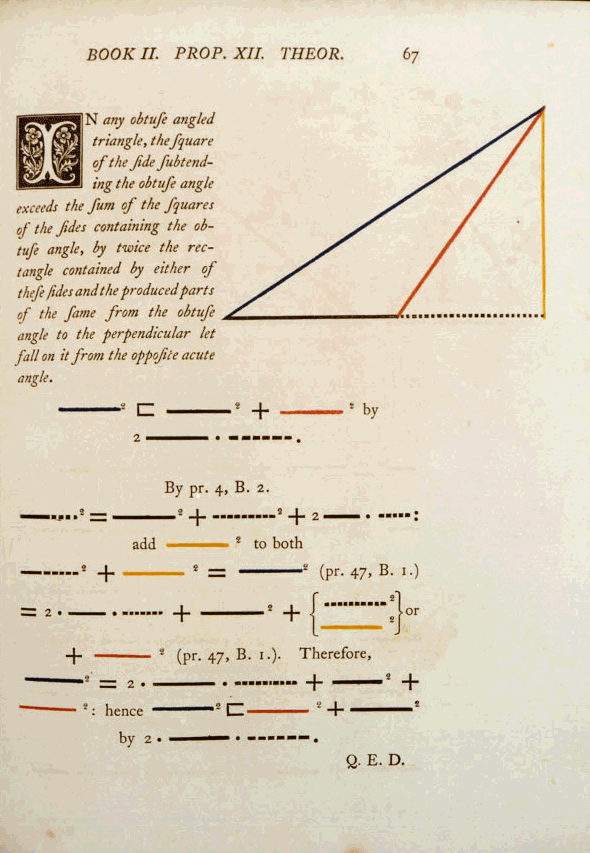 BOOK II. PROP. XII. THEOR. 67
IN any obtuſe angled
triangle, the ſquare
of the ſide ſubtend-
ing the obtuſe angle
exceeds the ſum of the ſquares
of the ſides containing the ob-
tuſe angle, by twice the rec-
tangle contained by either of
theſe ſides and the produced parts
of the ſame from the obtuſe
angle to the perpendicular let
fall on it from the oppoſite acute
angle.
² ⊏ ² + ² by
2 · .
By pr. 4, B. 2.
² = ² + ² + 2 · :
add ² to both
² + ² = ² (pr. 47, B. 1.)
= 2 · · + ² + { ² ² } or
+ ² (pr. 47, B. 1.). Therefore,
² = 2 · · + ² +
² : hence ² ⊏ ² + ²
by 2 · · .
Q. E. D.